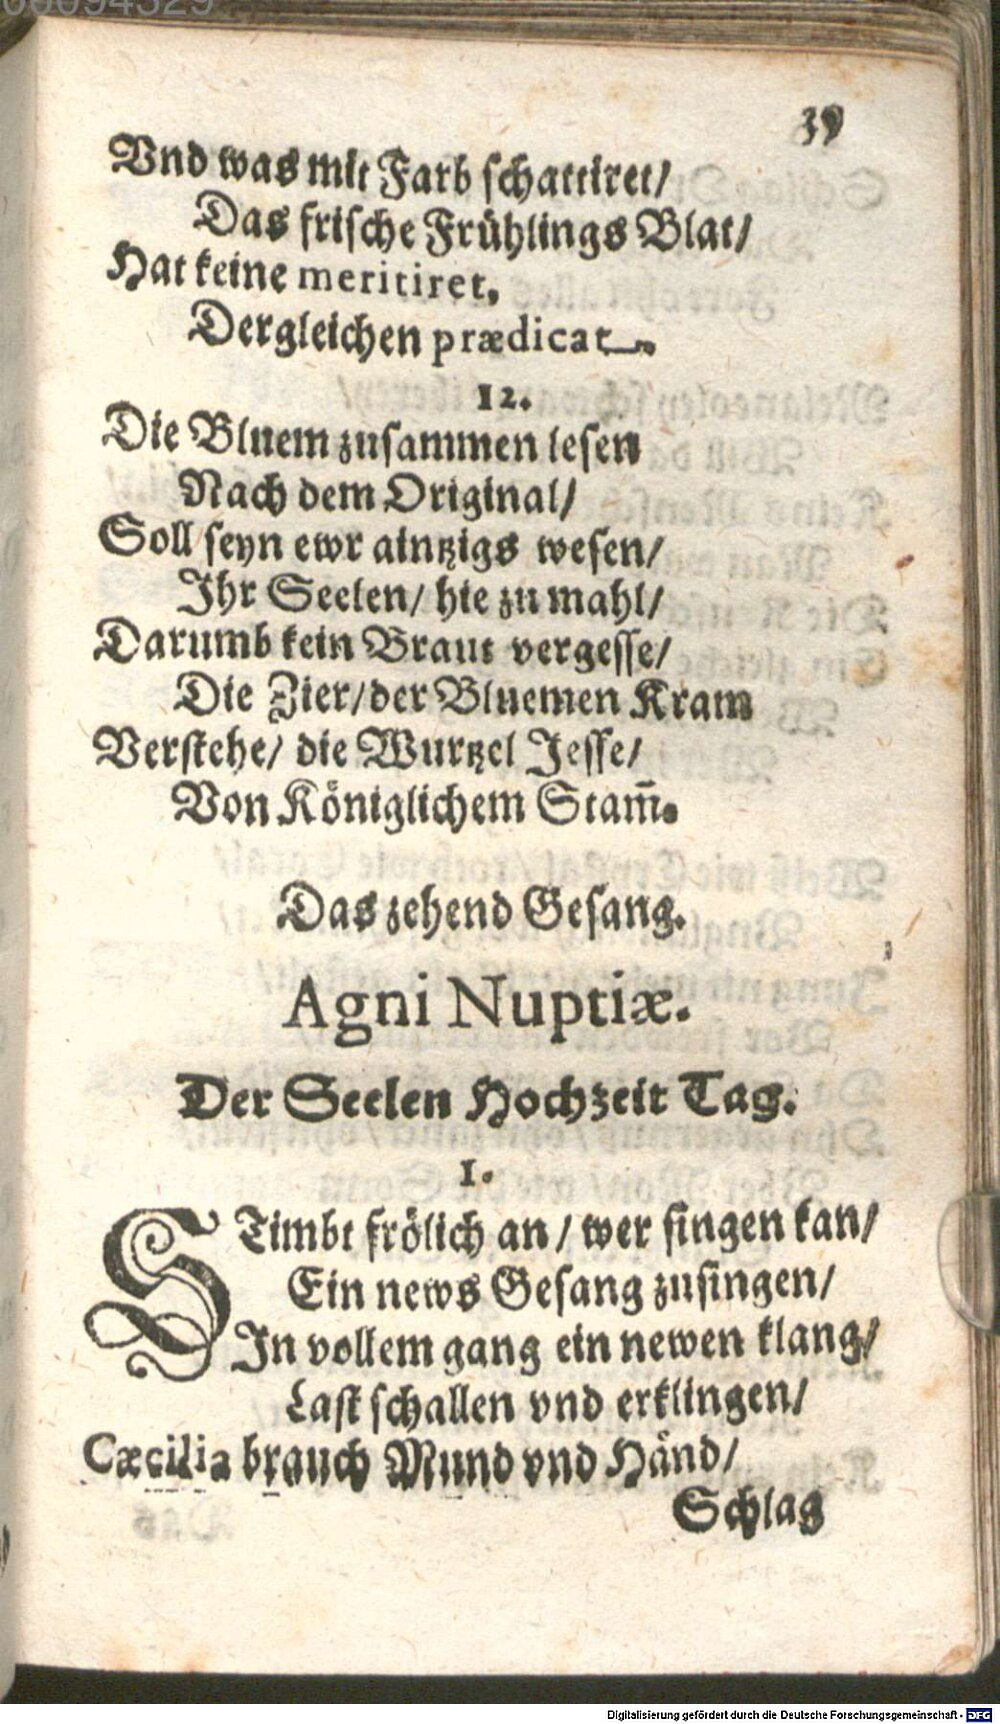 39
Vnd was mit Farb schattiret/
Das frische Frühlings Blat/
Hat keine meritiret,
Dergleichen prædicat.
12.
Die Bluem zusammen lesen
Nach dem Original/
Soll seyn ewr aintzigs wesen/
Ihr Seelen/ hie zu mahl/
Darumb kein Braut vergesse/
Die Zier/ der Bluemen Kram
Verstehe/ die Wurtzel Jesse/
Von Königlichem Stam̃.
Das zehend Gesang.
Agni Nuptiæ.
Der Seelen Hochzeit Tag.
1.
STimbt frölich an/ wer singen kan/
Ein news Gesang zusingen/
In vollem gang ein newen klang/
Last schallen vnd erklingen/
Cæcilia brauch Mund vnd Händ/
Schlag
Digitalisierung gefördert durch die Deutsche Forschungsgemeinschaft - DFG